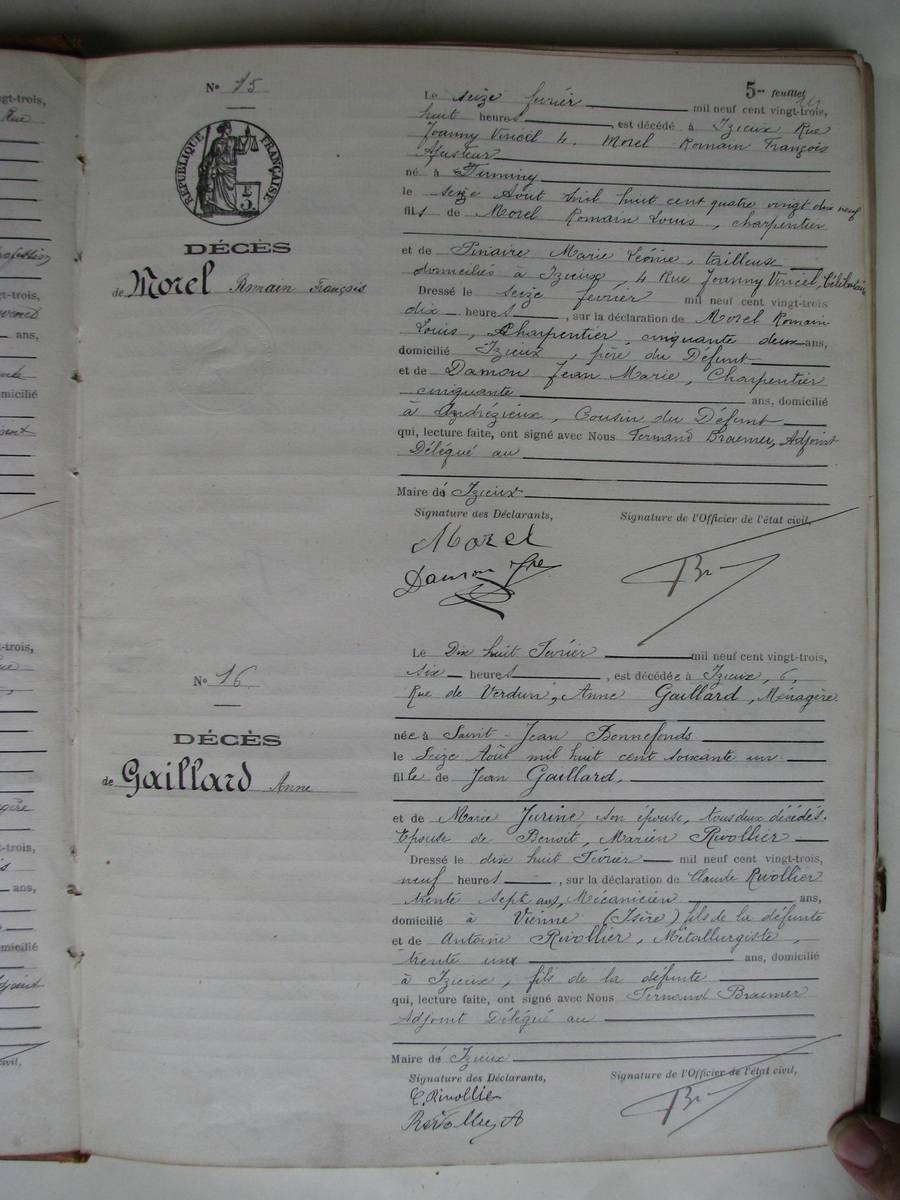 5me feuillet
Nº 15
RÉPUBLIQUE FRANÇAISE
DÉCÈS
de Morel Romain François
Le seize février mil neuf cent vingt-trois,
huit heures, est décédé à Izieux Rue
Joanny Viricel 4. Morel Romain François
Ajusteur
né à Firminy
le seize Août mil huit cent quatre vingt dix neuf
fils de Morel Romain Louis, charpentier
et de Pinaire Marie Léonie, tailleuse
domiciliés à Izieux, 4 Rue Joanny Viricel, Célibataire
Dressé le seize février mil neuf cent vingt-trois
dix heures, sur la déclaration de Morel Romain
Louis, Charpentier, cinquante deux ans,
domicilié Izieux, père du Défunt
et de Damon Jean Marie, Charpentier
cinquante ans, domicilié
à Andrézieux, Cousin du Défunt
qui, lecture faite, ont signé avec Nous Fernand Braemer, Adjoint
Délégué au
Maire de Izieux
Signature des Déclarants, Signature de l'Officier de l'état civil,
Morel
Damon Br
Nº 16
DÉCÈS
de Gaillard Anne
Le Dix huit Fevrier mil neuf cent vingt-trois,
six heures, est décédée à Izieux, 6,
Rue de Verdun, Anne Gaillard, Ménagère
née à Saint-Jean Bonnefonds
le Seize Août mil huit cent soixante un
fille de Jean Gaillard,
et de Marie Jurine, son épouse, tous deux décédés.
Epouse de Benoit, Marien Rivollier
Dressé le dix huit Février mil neuf cent vingt-trois,
neuf heures, sur la déclaration de Claude Rivollier
trente sept ans, Mécanicien ans,
domicilié à Vienne (Isère) fils de la défunte
et de Antoine Rivollier, Métallurgiste,
trente uns ans, domicilié
à Izieux, fils de la défunte
qui, lecture faite, ont signé avec Nous Fernand Braemer
Adjoint Délégué au
Maire de Izieux
Signature des Déclarants, Signature de l'Officier de l'état civil,
C. Rivollier
Rivollier A Br